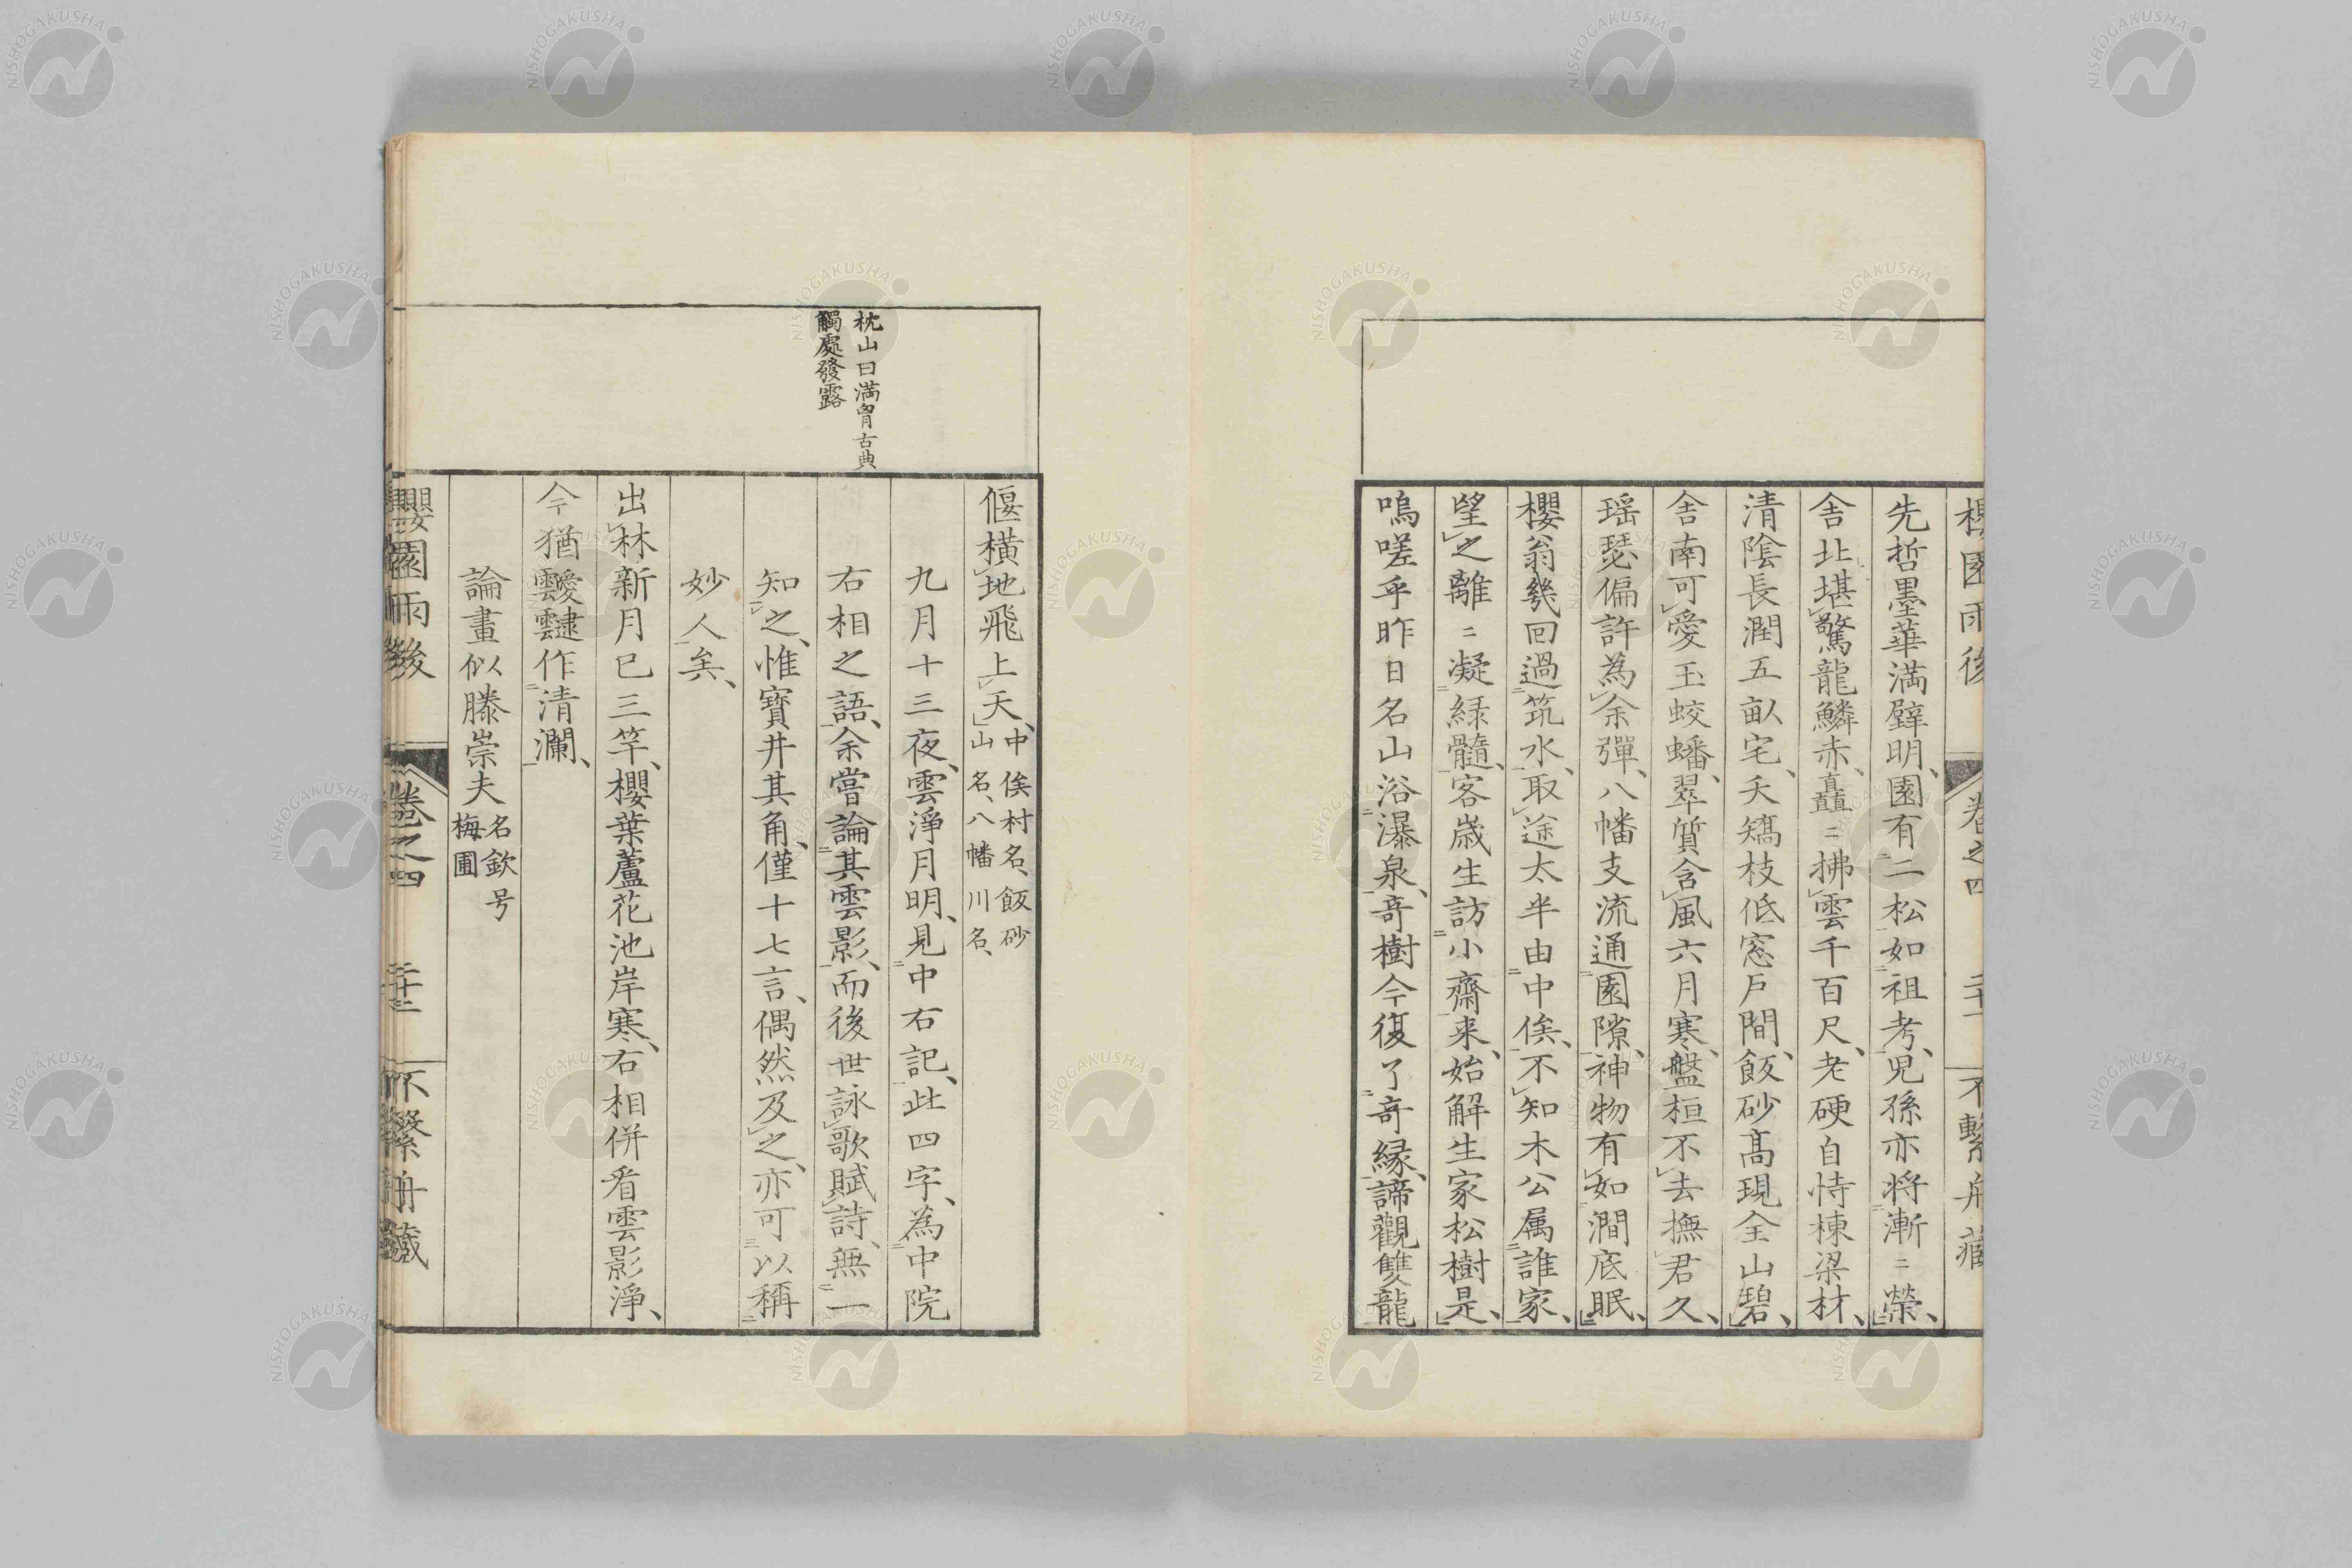 櫻園雨後 卷之四 不繫舟藏
先哲墨華満壁明、園有二松如祖考、児孫亦将漸〻榮、
舎北堪驚龍鱗赤、矗〻拂雲千百尺、老硬自恃棟梁材、
清陰長潤五畝宅、夭矯枝低窓戸間、飯砂髙現全山碧、
舎南可愛玉蛟蟠、翠質含風六月寒、盤桓不去撫君久、
瑶瑟偏許為余彈、八幡支流通園隙、神物有如澗底眠、
櫻翁幾回過筑水、取途太半由中俟、不知木公属誰家、
望之離〻凝緑髓、客歳生訪小齋来、始解生家松樹是、
嗚嗟乎昨日名山浴瀑泉、竒樹今復了竒縁、諦觀雙龍
枕山曰満胷古典
觸處發露
偃横地飛上天、中俟村名、飯砂
山名、八幡川名、
九月十三夜、雲淨月明、見中右記、此四字、為中院
右相之語、余嘗論其雲影、而後世詠歌賦詩、無一
知之、惟寶井其角、僅十七言、偶然及之、亦可以稱
妙人矣、
出林新月已三竿、櫻葉蘆花池岸寒、右相併看雲影淨、
今猶靉靆作清瀾、
論畫似滕崇夫 名欽号
梅圃
櫻園雨後 卷之四 不繫舟藏